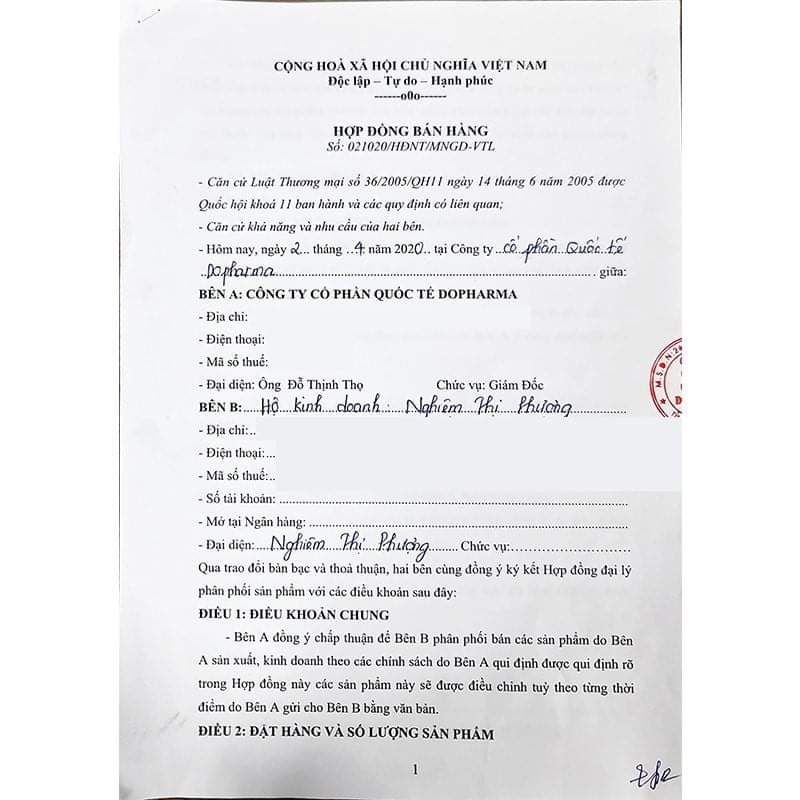 CỘNG HOÀ XÃ HỘI CHỦ NGHĨA VIỆT NAM
Độc lập – Tự do – Hạnh phúc
------o0o------
HỢP ĐỒNG BÁN HÀNG
Số: 021020/HĐNT/MNGD-VTL
- Căn cứ Luật Thương mại số 36/2005/QH11 ngày 14 tháng 6 năm 2005 được
Quốc hội khoá 11 ban hành và các quy định có liên quan;
- Căn cứ khả năng và nhu cầu của hai bên.
- Hôm nay, ngày 2... tháng ..4 năm 2020.. tại Công ty ..cổ phần Quốc tế
..Dopharma.......... giữa:
BÊN A: CÔNG TY CỔ PHẦN QUỐC TẾ DOPHARMA
- Địa chỉ:
- Điện thoại:
- Mã số thuế:
- Đại diện: Ông Đỗ Thịnh Thọ Chức vụ: Giám Đốc
BÊN B:.... Hộ kinh doanh: Nghiêm Thị Phương
- Địa chỉ:..
- Điện thoại:...
- Mã số thuế:..
- Số tài khoản: ..........
- Mở tại Ngân hàng: ..........
- Đại diện:....Nghiêm Thị Phượng.......... Chức vụ:..........
Qua trao đổi bàn bạc và thoả thuận, hai bên cùng đồng ý ký kết Hợp đồng đại lý
phân phối sản phẩm với các điều khoản sau đây:
ĐIỀU 1: ĐIỀU KHOẢN CHUNG
- Bên A đồng ý chấp thuận để Bên B phân phối bán các sản phẩm do Bên
A sản xuất, kinh doanh theo các chính sách do Bên A qui định được qui định rõ
trong Hợp đồng này các sản phẩm này sẽ được điều chỉnh tuỳ theo từng thời
điểm do Bên A gửi cho Bên B bằng văn bản.
ĐIỀU 2: ĐẶT HÀNG VÀ SỐ LƯỢNG SẢN PHẨM
1